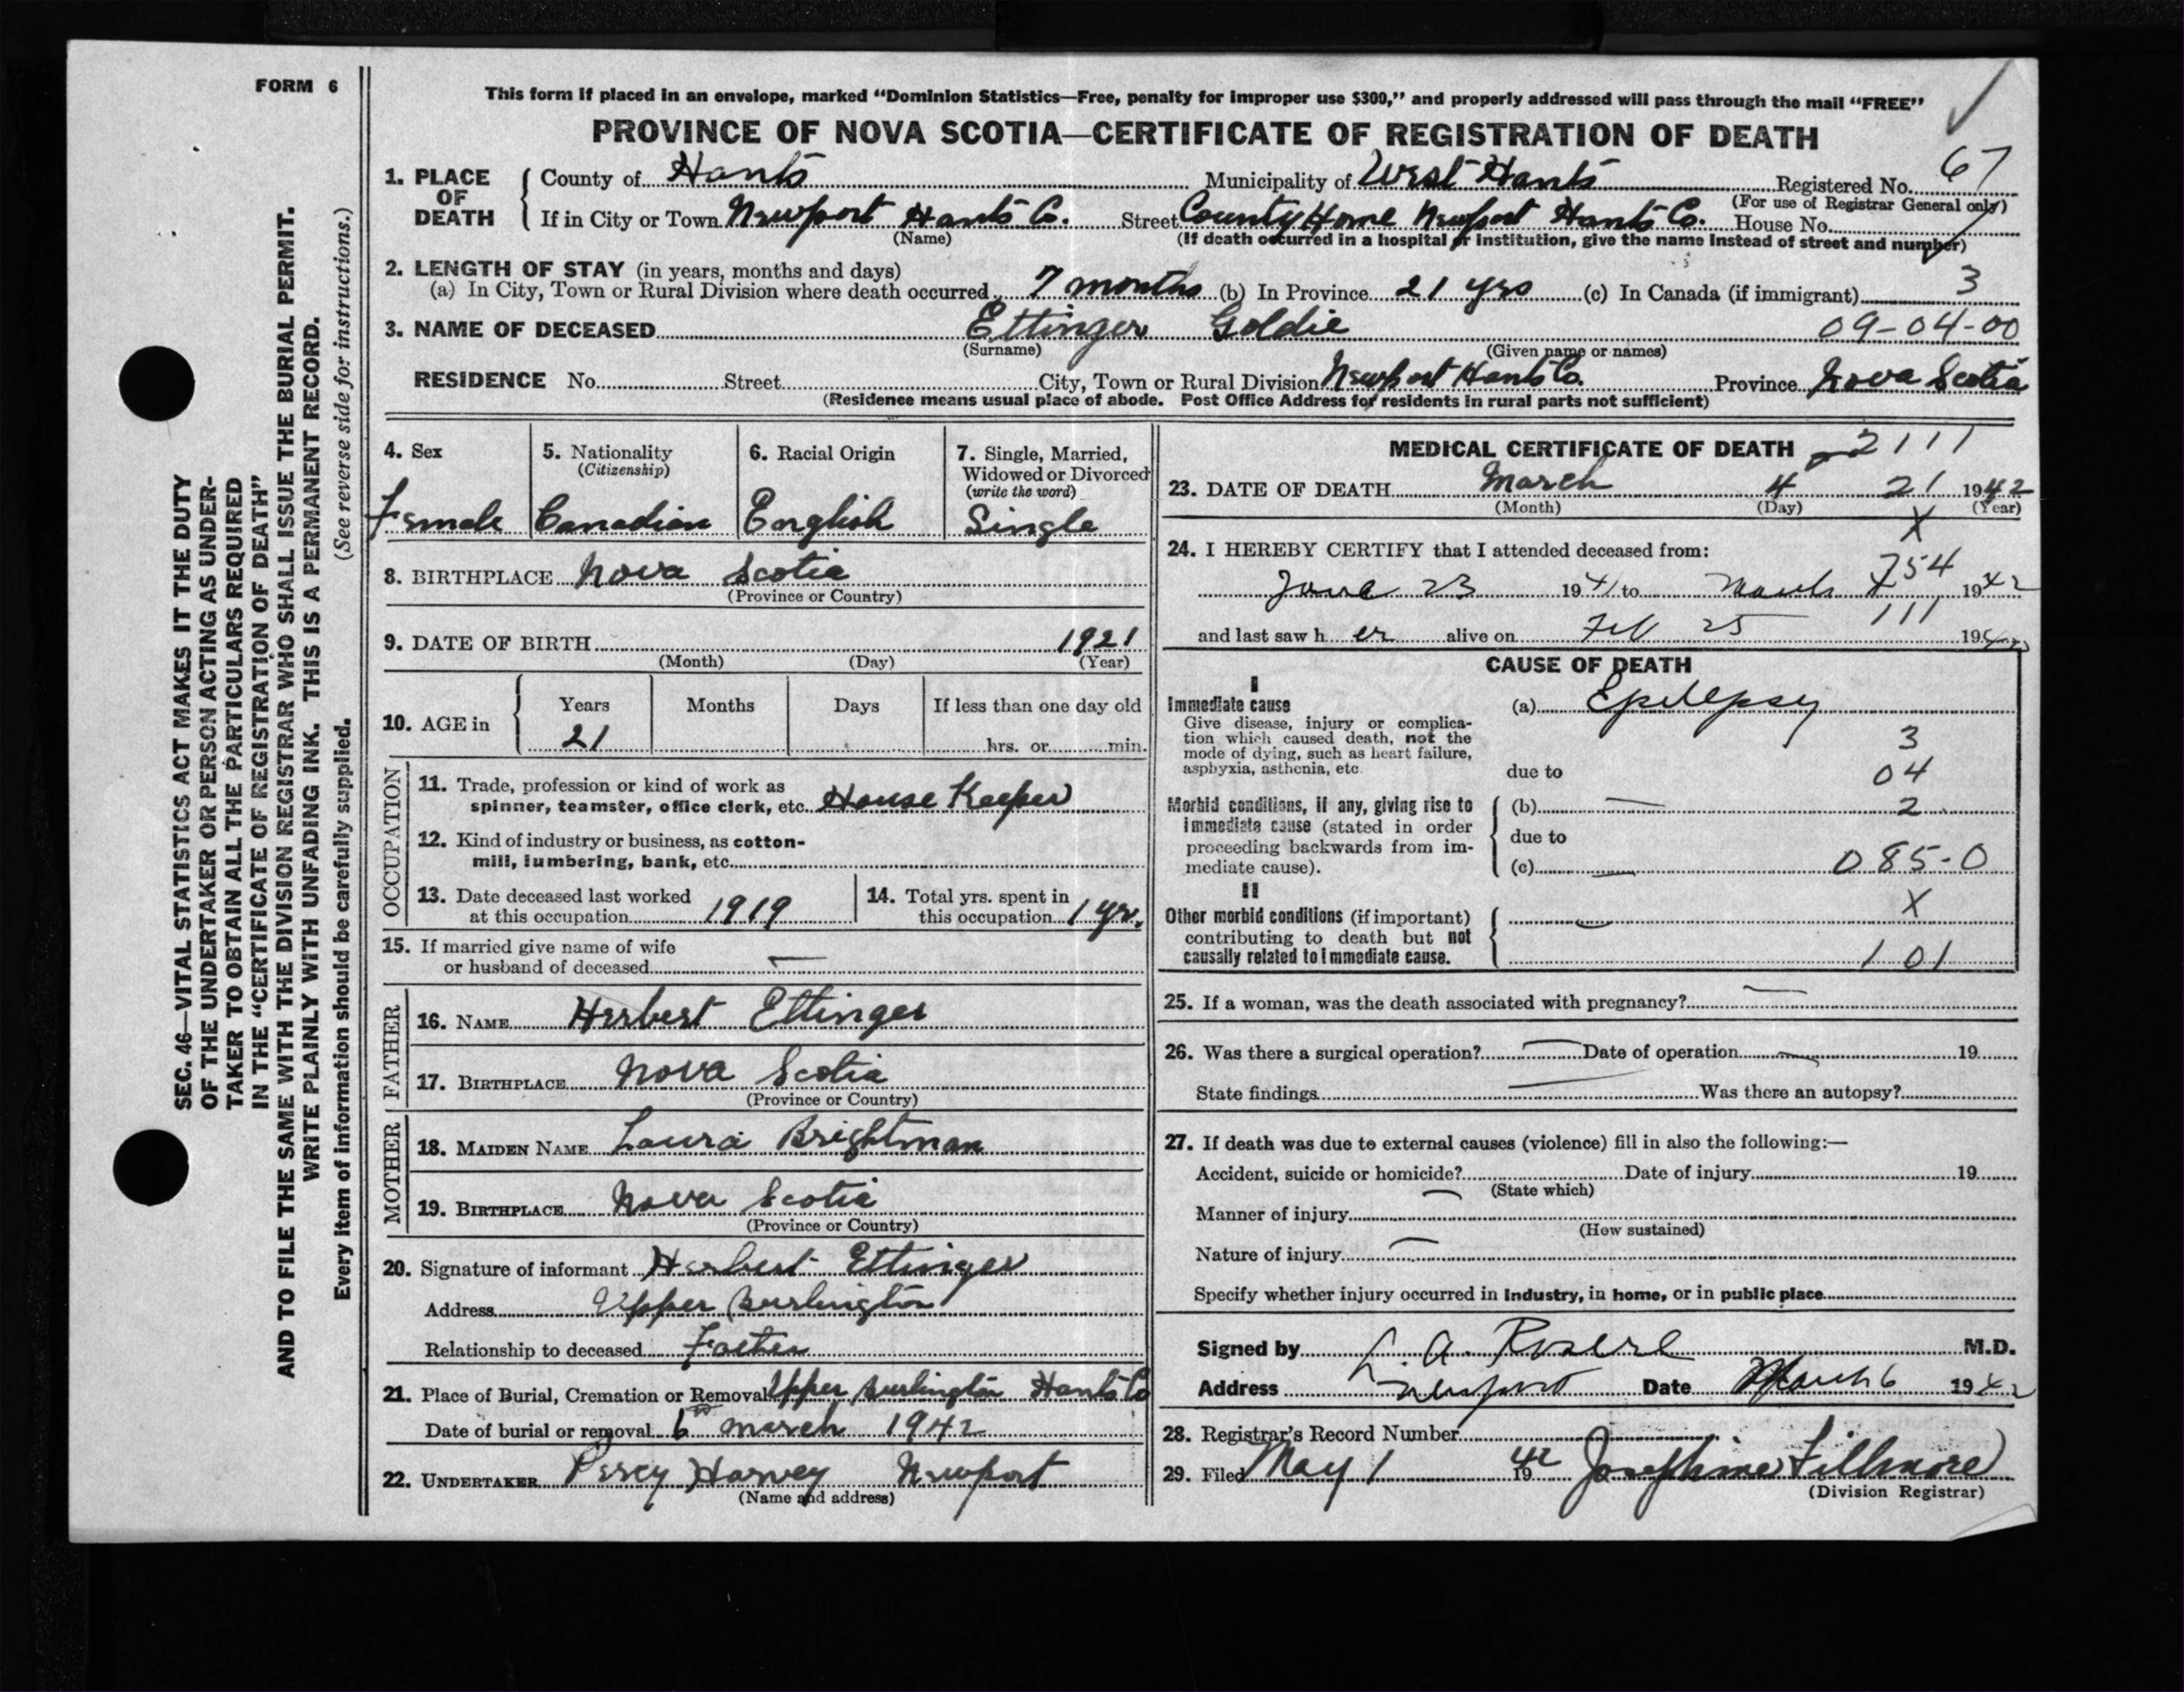 FORM 6
SEC. 46—VITAL STATISTICS ACT MAKES IT THE DUTY
OF THE UNDERTAKER OR PERSON ACTING AS UNDER-
TAKER TO OBTAIN ALL THE PARTICULARS REQUIRED
IN THE "CERTIFICATE OF REGISTRATION OF DEATH"
AND TO FILE THE SAME WITH THE DIVISION REGISTRAR WHO SHALL ISSUE THE BURIAL PERMIT.
WRITE PLAINLY WITH UNFADING INK. THIS IS A PERMANENT RECORD.
Every item of information should be carefully supplied. (See reverse side for instructions.)
This form if placed in an envelope, marked "Dominion Statistics—Free, penalty for improper use $300," and properly addressed will pass through the mail "FREE"
PROVINCE OF NOVA SCOTIA—CERTIFICATE OF REGISTRATION OF DEATH
1. PLACE OF DEATH { County of Hants Municipality of West Hants Registered No. 67
(For use of Registrar General only)
If in City or Town Newport Hants Co. Street County Home Newport Hants Co. House No.
(Name) (If death occurred in a hospital or institution, give the name instead of street and number)
2. LENGTH OF STAY (in years, months and days)
(a) In City, Town or Rural Division where death occurred 7 months (b) In Province 21 yrs (c) In Canada (if immigrant) 3
3. NAME OF DECEASED Ettinger Goldie 09-04-00
(Surname) (Given name or names)
RESIDENCE No. Street City, Town or Rural Division Newport Hants Co. Province Nova Scotia
(Residence means usual place of abode. Post Office Address for residents in rural parts not sufficient)
4. Sex 5. Nationality 6. Racial Origin 7. Single, Married,
(Citizenship) Widowed or Divorced
(write the word)
Female Canadian English Single
8. BIRTHPLACE Nova Scotia
(Province or Country)
9. DATE OF BIRTH 1921
(Month) (Day) (Year)
10. AGE in { Years Months Days If less than one day old
21 hrs. or min.
OCCUPATION
11. Trade, profession or kind of work as
spinner, teamster, office clerk, etc. House Keeper
12. Kind of industry or business, as cotton-
mill, lumbering, bank, etc.
13. Date deceased last worked
at this occupation 1919
14. Total yrs. spent in
this occupation 1 yr.
15. If married give name of wife
or husband of deceased —
FATHER
16. NAME Herbert Ettinger
17. BIRTHPLACE Nova Scotia
(Province or Country)
MOTHER
18. MAIDEN NAME Laura Brightman
19. BIRTHPLACE Nova Scotia
(Province or Country)
20. Signature of informant Herbert Ettinger
Address Upper Burlington
Relationship to deceased Father
21. Place of Burial, Cremation or Removal Upper Burlington Hants Co
Date of burial or removal 6th march 1942
22. UNDERTAKER Percy Harvey Newport
(Name and address)
MEDICAL CERTIFICATE OF DEATH 2111
23. DATE OF DEATH March 4 21 1942
(Month) (Day) (Year)
X
24. I HEREBY CERTIFY that I attended deceased from:
754
June 23 1941 to March 4 1942
111
and last saw her alive on Feb 25 1942
CAUSE OF DEATH
I
Immediate cause
Give disease, injury or complica-
tion which caused death, not the
mode of dying, such as heart failure,
asphyxia, asthenia, etc.
(a) Epilepsy
3
due to 04
Morbid conditions, if any, giving rise to
immediate cause (stated in order
proceeding backwards from im-
mediate cause).
(b) — 2
due to
(c) — 085-0
II
Other morbid conditions (if important)
contributing to death but not
causally related to immediate cause.
X
101
25. If a woman, was the death associated with pregnancy? —
26. Was there a surgical operation? — Date of operation — 19
State findings — Was there an autopsy?
27. If death was due to external causes (violence) fill in also the following:—
Accident, suicide or homicide? Date of injury 19
(State which)
Manner of injury —
(How sustained)
Nature of injury —
Specify whether injury occurred in industry, in home, or in public place
Signed by A. M.D.
Address Newport Date March 6 1942
28. Registrar's Record Number
29. Filed May 1 1942 Josephine Fillmore
(Division Registrar)